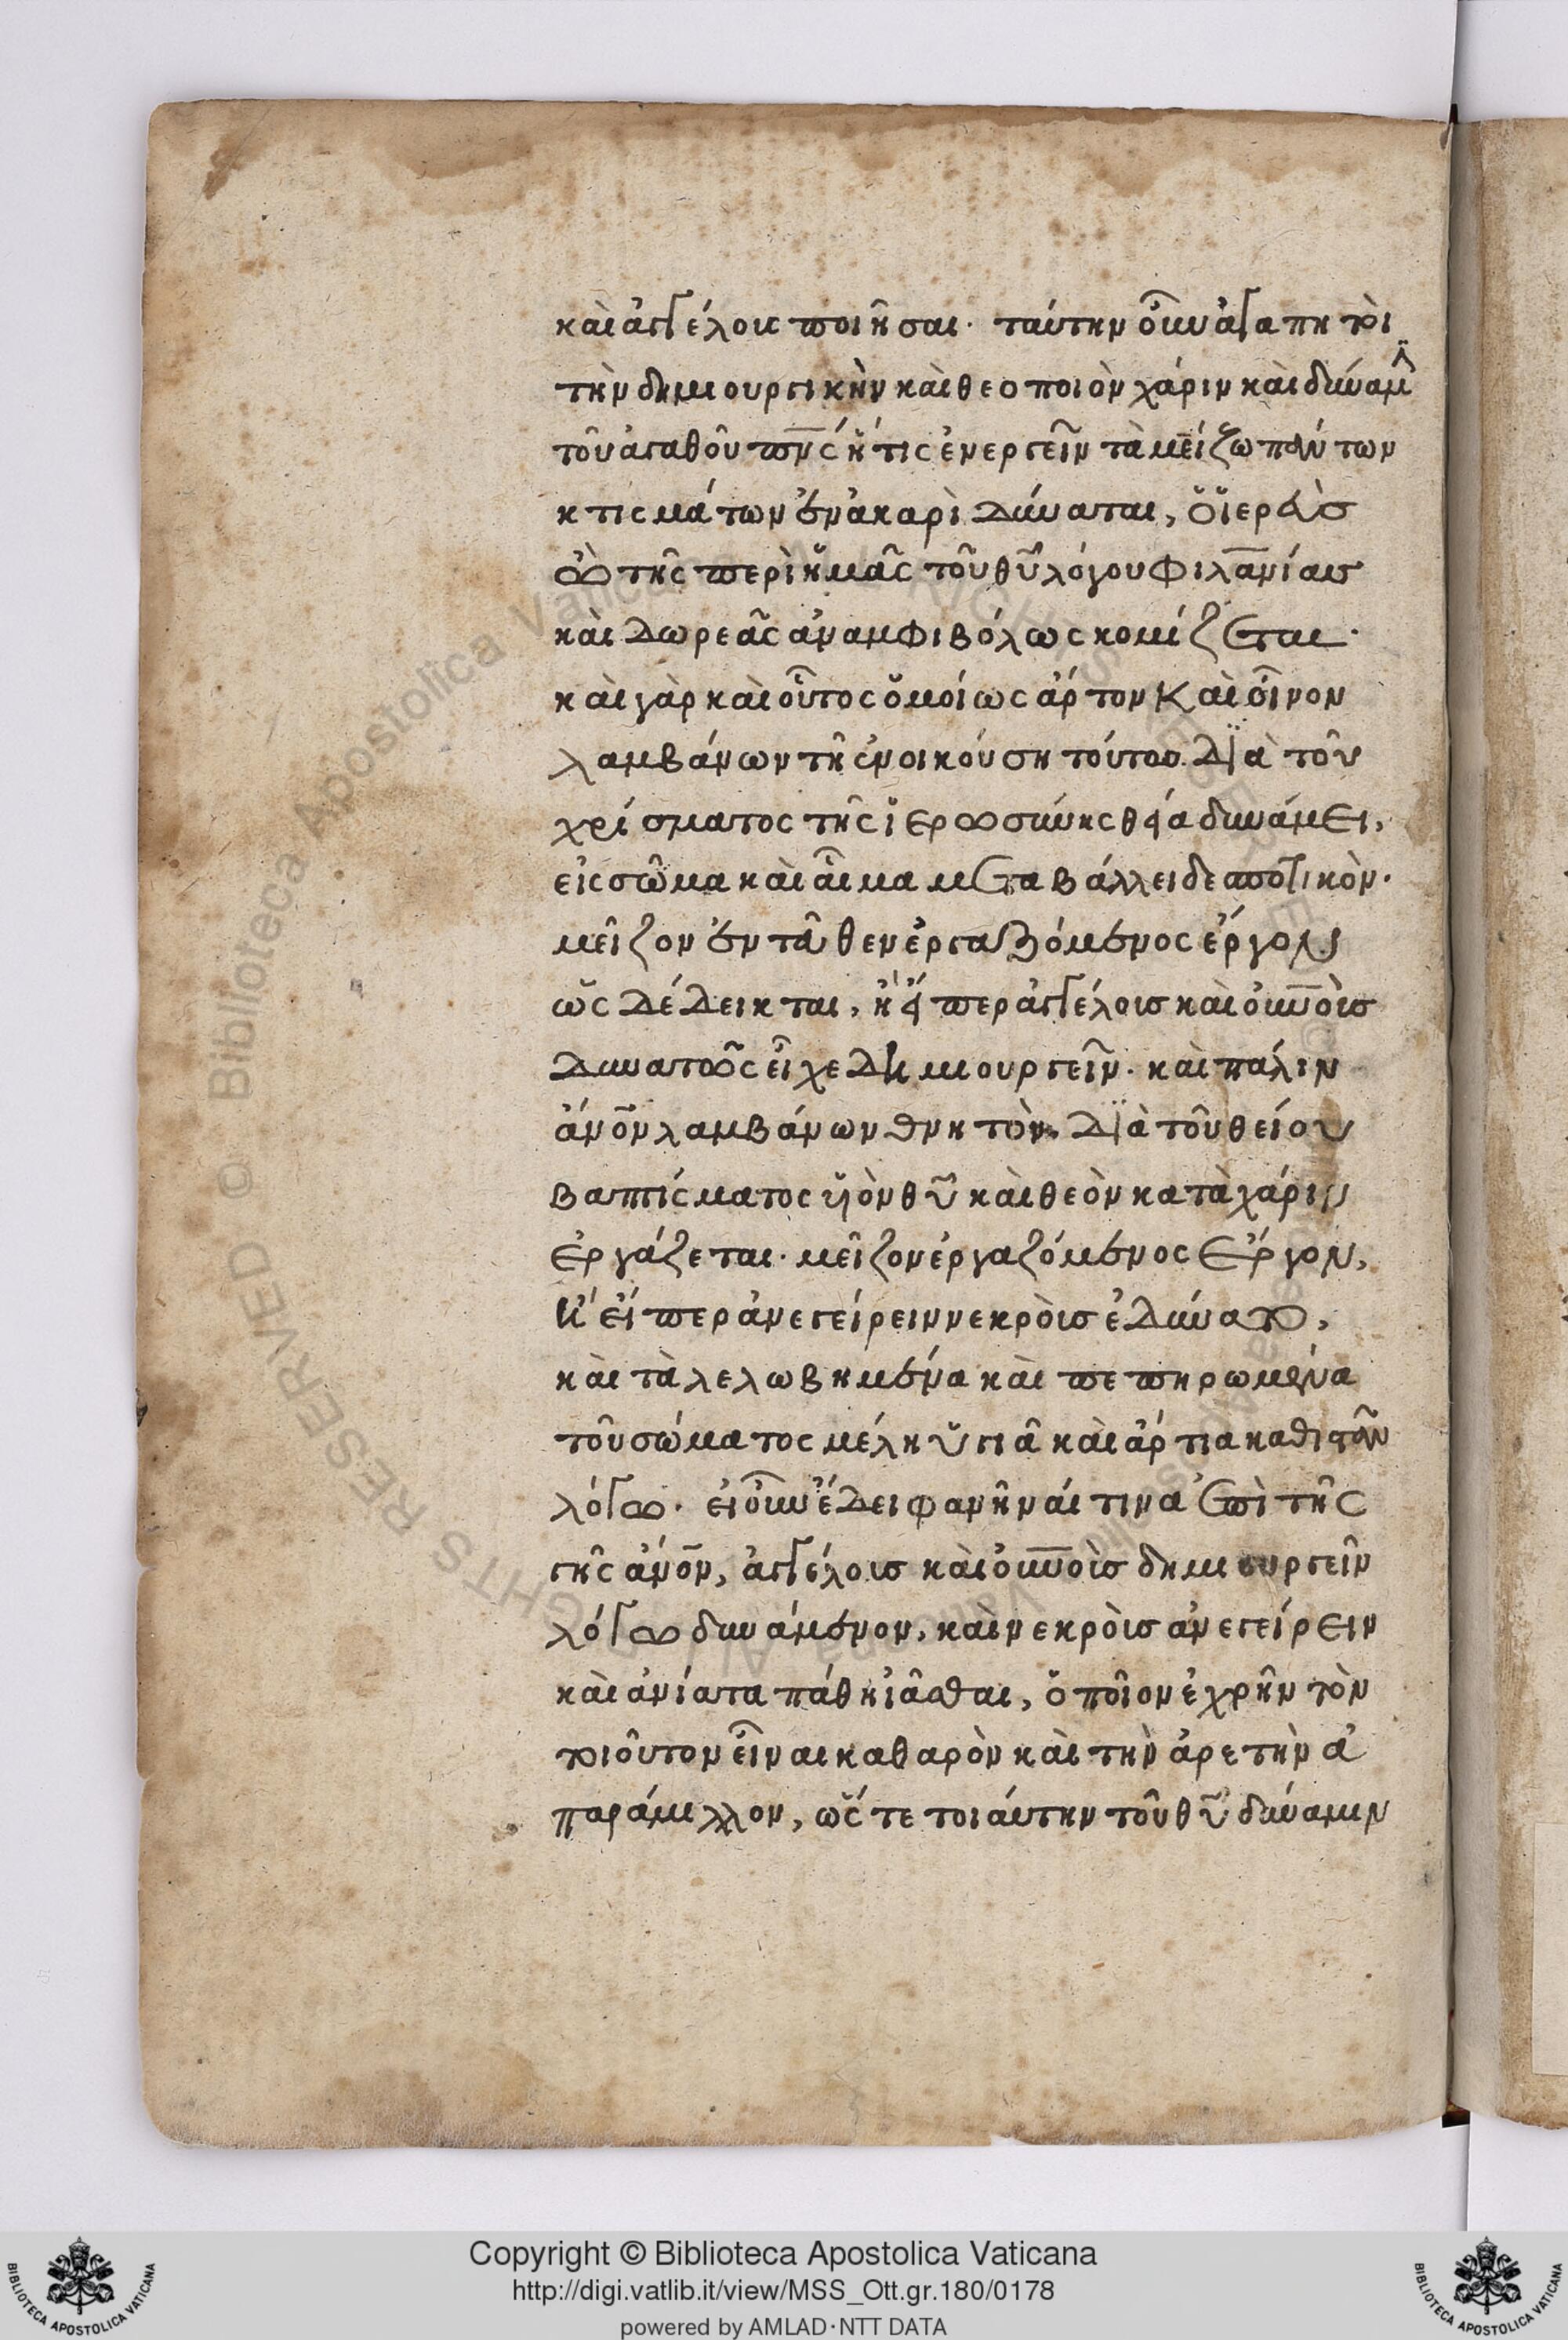 καὶ ἀγγέλους ποιῆσαι· ταύτην οὖν ἀγαπητοὶ
τὴν δημιουργικὴν καὶ θεοποιὸν χάριν καὶ δύναμιν
τοῦ ἀγαθοῦ πνς ἥτις ἐνεργεῖν τὰ μείζω πάντων
κτισμάτων ἐν ἀκαρὶ δύναται, ὁ ἱερεὺς
ἐκ τῆς περὶ ἡμᾶς τοῦ θυ λόγου φιλανίας
καὶ δωρεᾶς ἀναμφιβόλως κομίζεται·
καὶ γὰρ καὶ οὗτος ὁμοίως ἄρτον καὶ οἶνον
λαμβάνων τῇ ἐνοικούσῃ τούτῳ διὰ τοῦ
χρίσματος τῆς ἱερωσύνης θείᾳ δυνάμει,
εἰς σῶμα καὶ αἷμα μεταβάλλει δεσποτικὸν·
μεῖζον ἐνταῦθεν ἐργαζόμενος ἔργον
ὡς δέδεικται, ἢ εἴπερ ἀγγέλους καὶ οὐνοὺς
δυνατῶς εἶχε δημιουργεῖν· καὶ πάλιν
ἄνον λαμβάνων θνητὸν διὰ τοῦ θείου
βαπτίσματος υἱὸν θυ καὶ θεὸν κατὰ χάριν
ἐργάζεται· μεῖζον ἐργαζόμενος ἔργον,
ἢ εἴπερ ἀνεγείρειν νεκροὺς ἐδύνατο,
καὶ τὰ λελωβημένα καὶ πεπηρωμένα
τοῦ σώματος μέλη ὑγιᾶ καὶ ἄρτια καθιστᾶν
λόγῳ· εἰ οὖν ἔδει φανῆναί τινα ἐπὶ τῆς
γῆς ἄνον, ἀγγέλους καὶ οὐνοὺς δημιουργεῖν
λόγῳ δυνάμενον, καὶ νεκροὺς ἀνεγείρειν
καὶ ἀνίατα πάθη ἰᾶσθαι, ὁποῖον ἐχρῆν τὸν
τοιοῦτον εἶναι καθαρὸν καὶ τὴν ἀρετὴν ἀ
παράμιλλον, ὥστε τοιαύτην τοῦ θυ δύναμιν
Copyright © Biblioteca Apostolica Vaticana
http://digi.vatlib.it/view/MSS_Ott.gr.180/0178
powered by AMLAD·NTT DATA